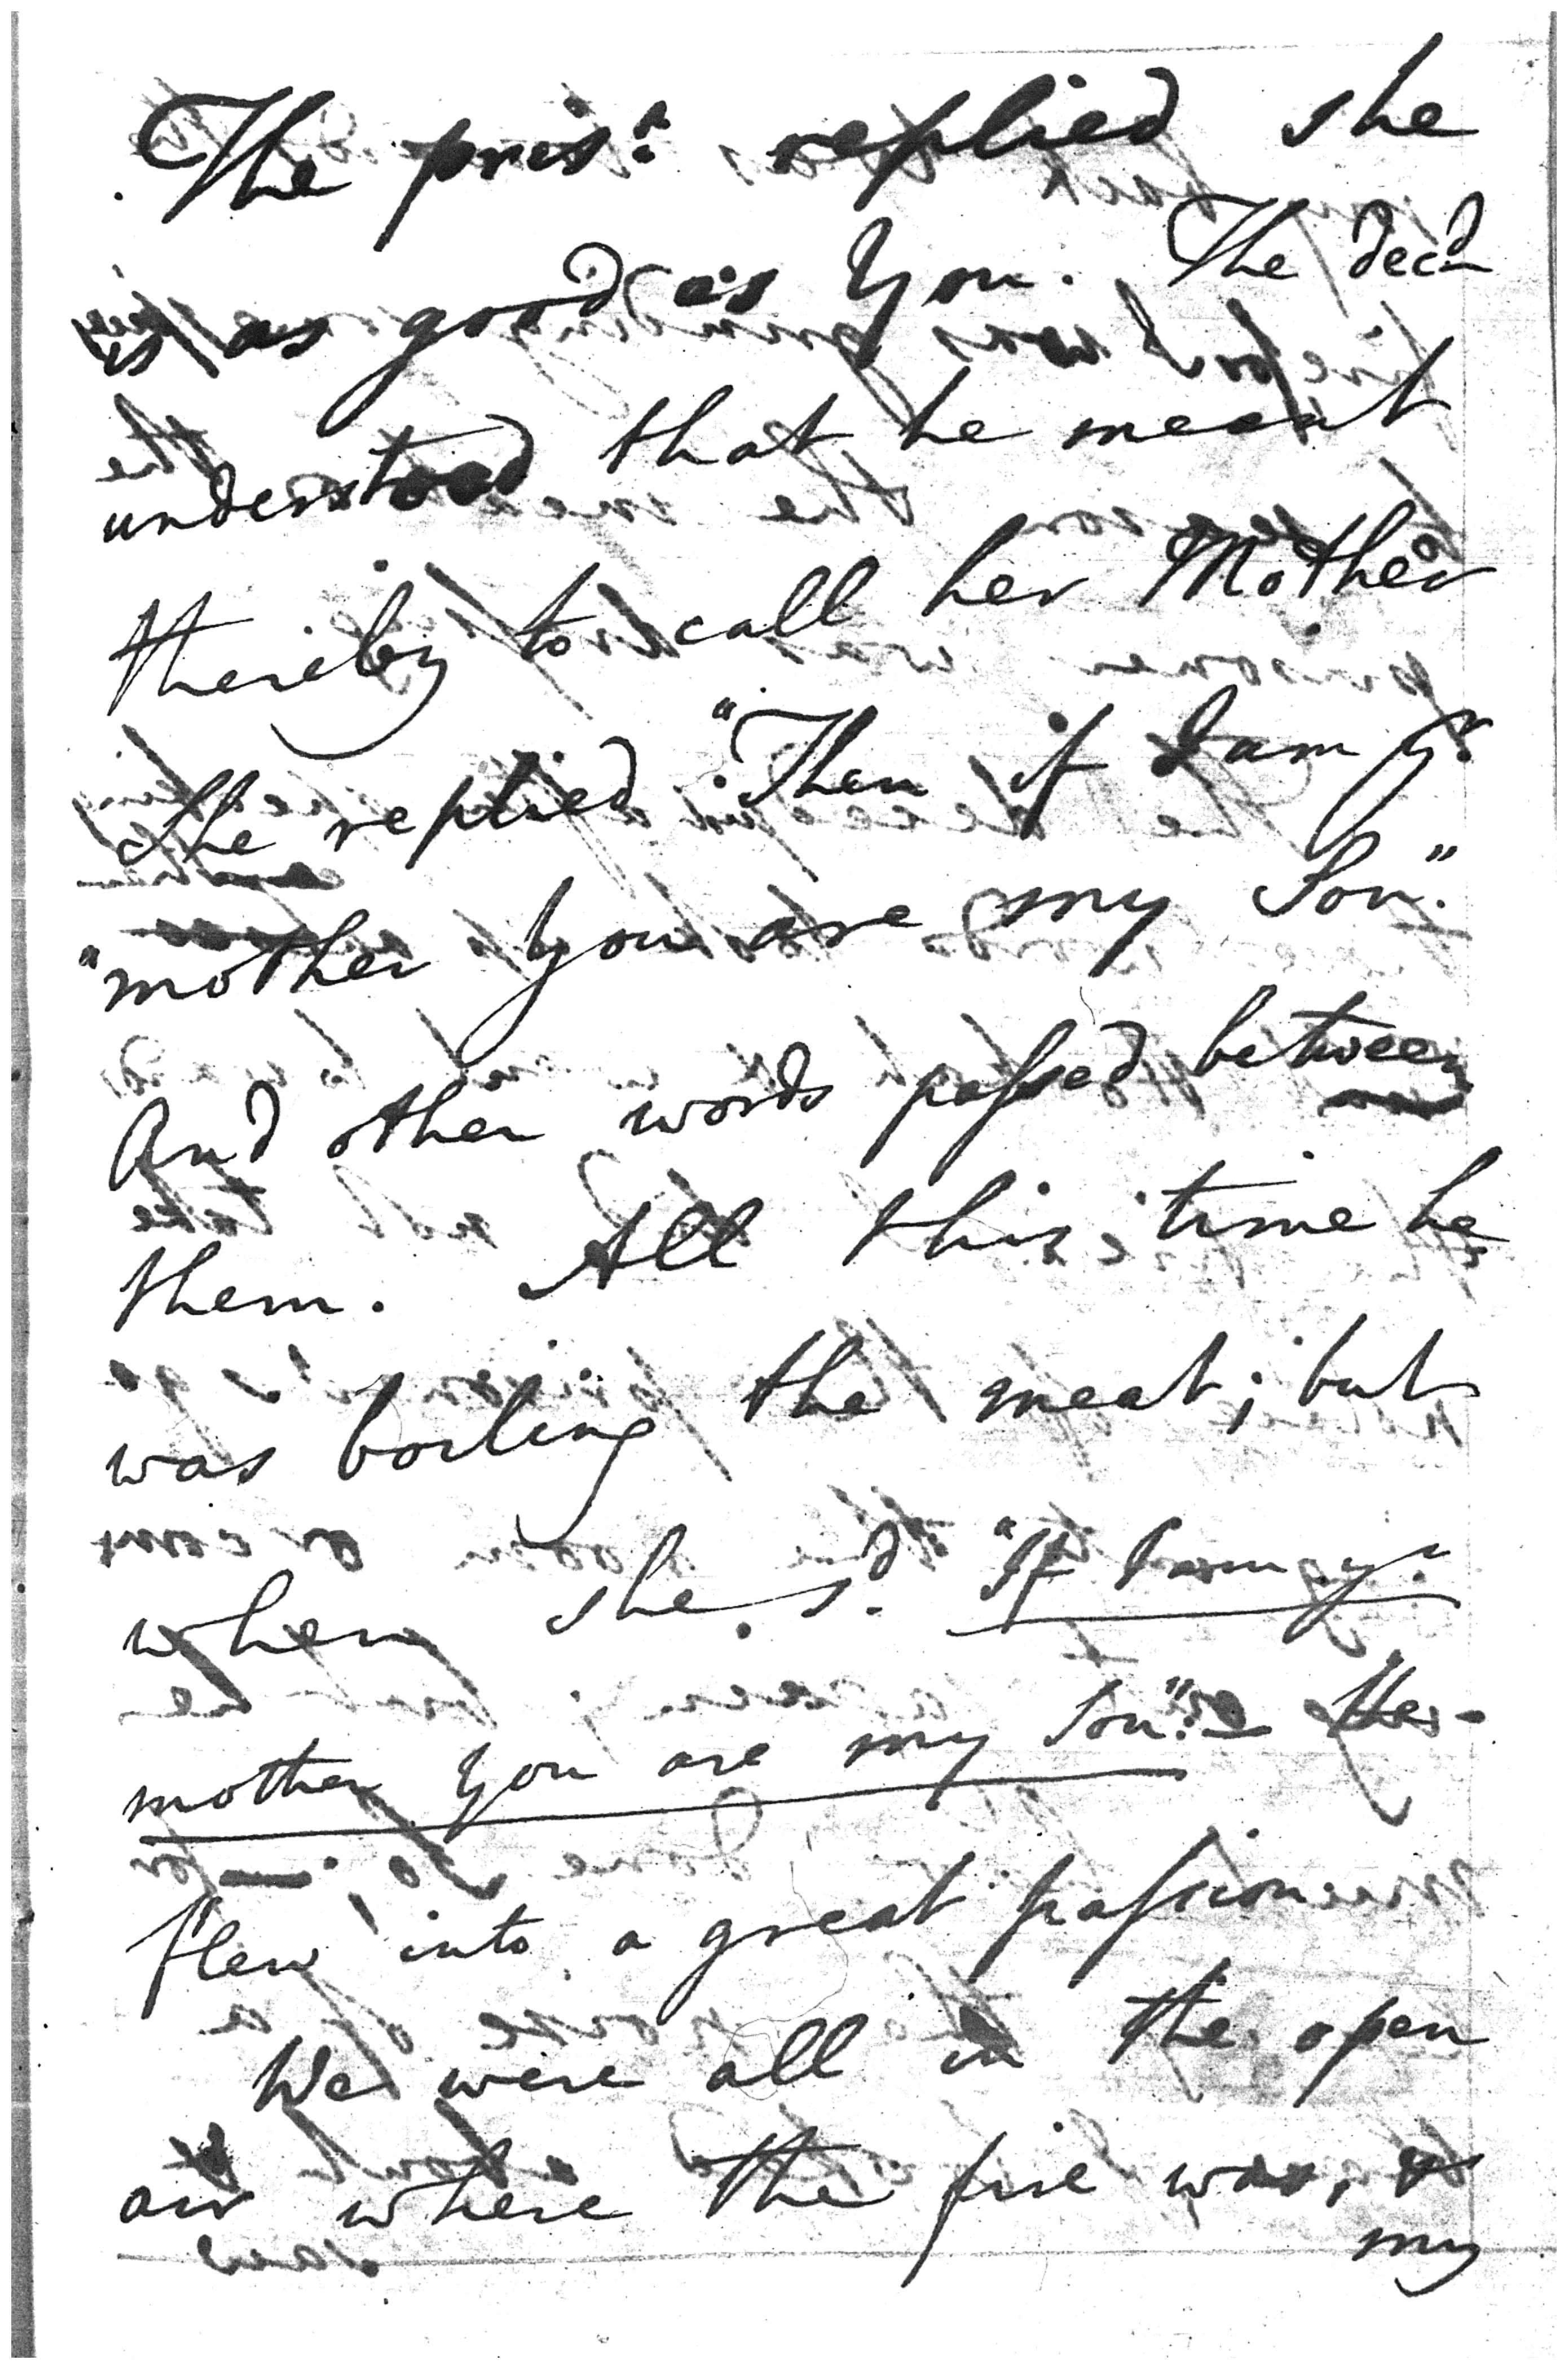 The prisr. replied she
is as good as you. The decd
understood that he meant
thereby to call her Mother
She replied "Then if I am yr.
"mother you are my Son."
And other words passed between
them. All this time he
was boiling the meat; but
when she sd. "If I am yr.
mother you are my Son." He
flew into a great passion.
We were all in the open
air where the fire was, &
my